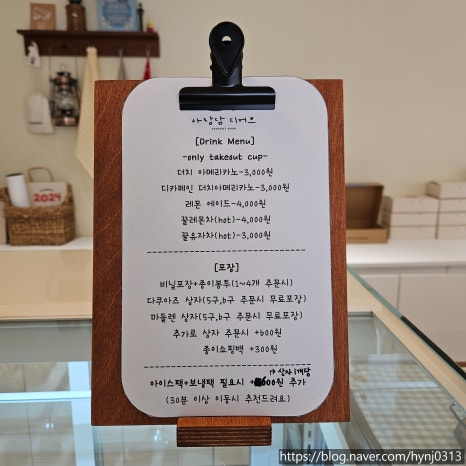 사랑담 디어므
DESSERT SHOP
[Drink Menu]
-only takeout cup-
더치 아메리카노-3,000원
디카페인 더치아메리카노-3,000원
레몬 에이드-4,000원
꿀레몬차(hot)-4,000원
꿀유자차(hot)-3,000원
[포장]
비닐포장+종이봉투(1~4개 주문시)
다쿠아즈 상자(5구,6구 주문시 무료포장)
마들렌 상자(5구,6구 주문시 무료포장)
추가로 상자 주문시 +600원
종이쇼핑백 +300원
상자 1개당
아이스팩+보냉팩 필요시 +600원 추가
(30분 이상 이동시 추천드려요)
2024
https://blog.naver.com/hynj0313